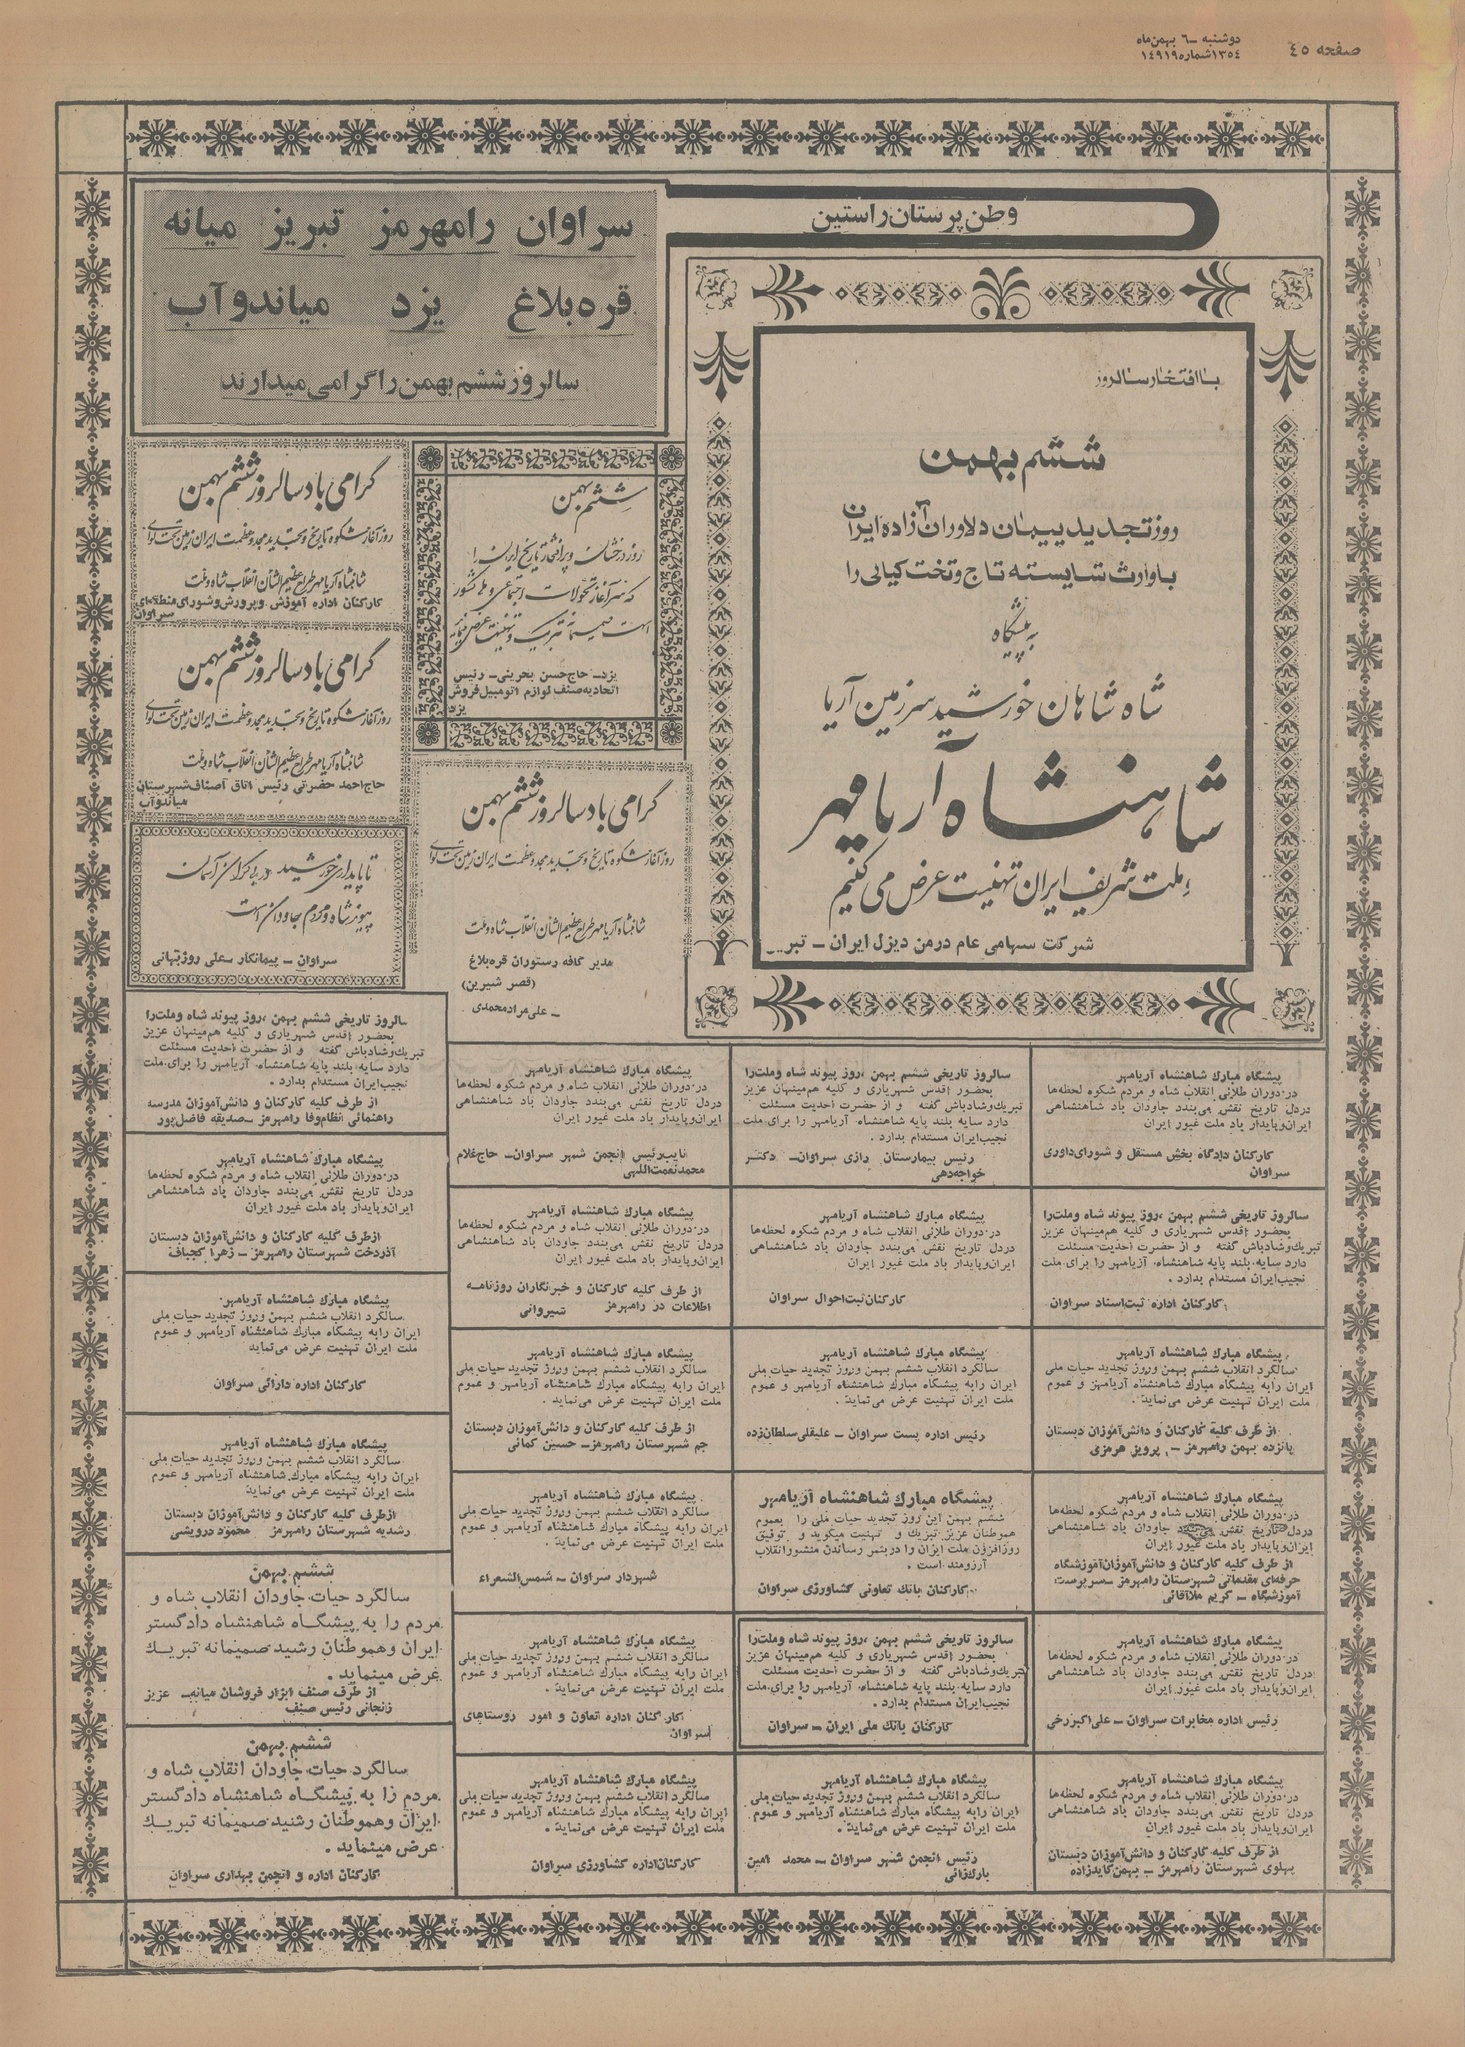 صفحه ٤٥
دوشنبه ـ ٦ بهمن‌ماه
١٣٥٤ شماره ١٤٩١٩
وطن پرستان راستین
سراوان رامهرمز تبریز میانه
قره‌بلاغ یزد میاندوآب
سالروز ششم بهمن را گرامی میدارند
با افتخار سالروز
ششم بهمن
روز تجدید پیمان دلاوران آزاده ایران
با وارث شایسته تاج و تخت کیانی را
به پیشگاه
شاه شاهان خورشید سرزمین آریا
شاهنشاه آریامهر
و ملت شریف ایران تهنیت عرض می کنیم
شرکت سهامی عام درمن دیزل ایران ـ
ششم بهمن
روز درخشان و پرافتخار تاریخ ایران را
که سرآغاز تحولات اجتماعی و ملی کشور
است صمیمانه تبریک و تهنیت عرض مینمایم
یزد ـ حاج حسن بحرینی ـ رئیس
اتحادیه صنف لوازم اتومبیل فروش
یزد
گرامی باد سالروز ششم بهمن
روز آغاز شکوه تاریخ و تجدید مجد و عظمت ایران زمین تحت لوای
شاهنشاه آریامهر طراح عظیم الشأن انقلاب شاه و ملت
کارکنان اداره آموزش و پرورش و شورای منطقه‌ای
سراوان
گرامی باد سالروز ششم بهمن
روز آغاز شکوه تاریخ و تجدید مجد و عظمت ایران زمین تحت لوای
شاهنشاه آریامهر طراح عظیم الشأن انقلاب شاه و ملت
حاج احمد حضرتی رئیس اتاق اصناف شهرستان
میاندوآب
گرامی باد سالروز ششم بهمن
روز آغاز شکوه تاریخ و تجدید مجد و عظمت ایران زمین تحت لوای
شاهنشاه آریامهر طراح عظیم الشأن انقلاب شاه و ملت
مدیر کافه رستوران قره‌بلاغ
(قصر شیرین)
ـ علی مراد محمدی
تا پایداری خورشید در بیکران آسمان
پیوند شاه و مردم جاودان است
سراوان ـ پیمانکار ـ علی روزبهانی
پیشگاه مبارك شاهنشاه آریامهر
در دوران طلائی انقلاب شاه و مردم شکوه لحظه‌ها
دردل تاریخ نقش می‌بندد جاودان باد شاهنشاهی
ایران و پایدار باد ملت غیور ایران
کارکنان دادگاه بخش مستقل و شورای داوری
سراوان
سالروز تاریخی ششم بهمن ،روز پیوند شاه وملت‌را
بحضور اقدس شهریاری و کلیه هم‌میهنان عزیز
تبریك‌وشادباش گفته و از حضرت احدیت مسئلت
دارد سایه بلند پایه شاهنشاه آریامهر را برای ملت
نجیب ایران مستدام بدارد .
رئیس بیمارستان رازی سراوان ـ دکتر
خواجه‌دهی
پیشگاه مبارك شاهنشاه آریامهر
در دوران طلائی انقلاب شاه و مردم شکوه لحظه‌ها
دردل تاریخ نقش می‌بندد جاودان باد شاهنشاهی
ایران و پایدار باد ملت غیور ایران
نایب رئیس انجمن شهر سراوان ـ حاج غلام
محمد نعمت‌اللهی
سالروز تاریخی ششم بهمن ،روز پیوند شاه وملت‌را
بحضور اقدس شهریاری و کلیه هم‌میهنان عزیز
تبریك‌وشادباش گفته و از حضرت احدیت مسئلت
دارد سایه بلند پایه شاهنشاه آریامهر را برای ملت
نجیب ایران مستدام بدارد .
از طرف کلیه کارکنان و دانش‌آموزان مدرسه
راهنمائی انتظام‌وفا رامهرمز ـ صدیقه فاضل‌پور
سالروز تاریخی ششم بهمن ،روز پیوند شاه وملت‌را
بحضور اقدس شهریاری و کلیه هم‌میهنان عزیز
تبریك‌وشادباش گفته و از حضرت احدیت مسئلت
دارد سایه بلند پایه شاهنشاه آریامهر را برای ملت
نجیب ایران مستدام بدارد .
کارکنان اداره ثبت اسناد سراوان
پیشگاه مبارك شاهنشاه آریامهر
در دوران طلائی انقلاب شاه و مردم شکوه لحظه‌ها
دردل تاریخ نقش می‌بندد جاودان باد شاهنشاهی
ایران و پایدار باد ملت غیور ایران
کارکنان ثبت احوال سراوان
پیشگاه مبارك شاهنشاه آریامهر
در دوران طلائی انقلاب شاه و مردم شکوه لحظه‌ها
دردل تاریخ نقش می‌بندد جاودان باد شاهنشاهی
ایران و پایدار باد ملت غیور ایران
از طرف کلیه کارکنان و خبرنگاران روزنامه
اطلاعات در رامهرمز شیروانی
پیشگاه مبارك شاهنشاه آریامهر
در دوران طلائی انقلاب شاه و مردم شکوه لحظه‌ها
دردل تاریخ نقش می‌بندد جاودان باد شاهنشاهی
ایران و پایدار باد ملت غیور ایران
ازطرف کلیه کارکنان و دانش‌آموزان دبستان
آذردخت شهرستان رامهرمز ـ زهرا کجباف
پیشگاه مبارك شاهنشاه آریامهر
سالگرد انقلاب ششم بهمن وروز تجدید حیات ملی
ایران رابه پیشگاه مبارك شاهنشاه آریامهر و عموم
ملت ایران تهنیت عرض می‌نماید.
از طرف کلیه کارکنان و دانش‌آموزان دبستان
پانزده بهمن رامهرمز ـ پرویز هرمزی
پیشگاه مبارك شاهنشاه آریامهر
سالگرد انقلاب ششم بهمن وروز تجدید حیات ملی
ایران رابه پیشگاه مبارك شاهنشاه آریامهر و عموم
ملت ایران تهنیت عرض می‌نماید .
رئیس اداره پست سراوان ـ علیقلی سلطان‌زده
پیشگاه مبارك شاهنشاه آریامهر
سالگرد انقلاب ششم بهمن وروز تجدید حیات ملی
ایران رابه پیشگاه مبارك شاهنشاه آریامهر و عموم
ملت ایران تهنیت عرض می‌نماید .
از طرف کلیه کارکنان و دانش‌آموزان دبستان
جم شهرستان رامهرمز ـ حسین کمائی
پیشگاه مبارك شاهنشاه آریامهر
سالگرد انقلاب ششم بهمن وروز تجدید حیات ملی
ایران رابه پیشگاه مبارك شاهنشاه آریامهر و عموم
ملت ایران تهنیت عرض می‌نماید
کارکنان اداره دارائی سراوان
پیشگاه مبارك شاهنشاه آریامهر
در دوران طلائی انقلاب شاه و مردم شکوه لحظه‌ها
دردل تاریخ نقش جاودان باد شاهنشاهی
ایران و پایدار باد ملت غیور ایران
از طرف کلیه کارکنان و دانش‌آموزان آموزشگاه
حرفه‌ای مقدماتی شهرستان رامهرمز ـ سرپرست
آموزشگاه ـ کریم ملاآقائی
پیشگاه مبارك شاهنشاه آریامهر
ششم بهمن این روز تجدید حیات ملی را بعموم
هموطنان عزیز تبریك و تهنیت میگوید و توفیق
روزافزون ملت ایران را دربثمر رساندن منشور انقلاب
آرزومند است .
کارکنان بانك تعاونی کشاورزی سراوان
پیشگاه مبارك شاهنشاه آریامهر
سالگرد انقلاب ششم بهمن وروز تجدید حیات ملی
ایران رابه پیشگاه مبارك شاهنشاه آریامهر و عموم
ملت ایران تهنیت عرض می‌نماید .
شهردار سراوان ـ شمس‌الشعراء
پیشگاه مبارك شاهنشاه آریامهر
سالگرد انقلاب ششم بهمن وروز تجدید حیات ملی
ایران رابه پیشگاه مبارك شاهنشاه آریامهر و عموم
ملت ایران تهنیت عرض می‌نماید
ازطرف کلیه کارکنان و دانش‌آموزان دبستان
رشدیه شهرستان رامهرمز محمود درویشی
پیشگاه مبارك شاهنشاه آریامهر
در دوران طلائی انقلاب شاه و مردم شکوه لحظه‌ها
دردل تاریخ نقش می‌بندد جاودان باد شاهنشاهی
ایران و پایدار باد ملت غیور ایران
رئیس اداره مخابرات سراوان ـ علی‌اکبر رخی
سالروز تاریخی ششم بهمن ،روز پیوند شاه وملت‌را
بحضور اقدس شهریاری و کلیه هم‌میهنان عزیز
تبریك‌وشادباش گفته و از حضرت احدیت مسئلت
دارد سایه بلند پایه شاهنشاه آریامهر را برای ملت
نجیب ایران مستدام بدارد .
کارکنان بانك ملی ایران ـ سراوان
پیشگاه مبارك شاهنشاه آریامهر
سالگرد انقلاب ششم بهمن وروز تجدید حیات ملی
ایران رابه پیشگاه مبارك شاهنشاه آریامهر و عموم
ملت ایران تهنیت عرض می‌نماید .
کارکنان اداره تعاون و امور روستاهای
سراوان
ششم بهمن
سالگرد حیات جاودان انقلاب شاه و
مردم را به پیشگاه شاهنشاه دادگستر
ایران وهموطنان رشید صمیمانه تبریك
عرض مینماید .
از طرف صنف ابزار فروشان میانه ـ عزیز
زنجانی رئیس صنف
پیشگاه مبارك شاهنشاه آریامهر
در دوران طلائی انقلاب شاه و مردم شکوه لحظه‌ها
دردل تاریخ نقش می‌بندد جاودان باد شاهنشاهی
ایران و پایدار باد ملت غیور ایران
از طرف کلیه کارکنان و دانش‌آموزان دبستان
پهلوی شهرستان رامهرمز ـ بهمن کایدزاده
پیشگاه مبارك شاهنشاه آریامهر
سالگرد انقلاب ششم بهمن وروز تجدید حیات ملی
ایران رابه پیشگاه مبارك شاهنشاه آریامهر و عموم
ملت ایران تهنیت عرض می‌نماید .
رئیس انجمن شهر سراوان ـ محمد امین
بارك‌زائی
پیشگاه مبارك شاهنشاه آریامهر
سالگرد انقلاب ششم بهمن وروز تجدید حیات ملی
ایران رابه پیشگاه مبارك شاهنشاه آریامهر و عموم
ملت ایران تهنیت عرض می‌نماید .
کارکنان اداره کشاورزی سراوان
ششم بهمن
سالگرد حیات جاودان انقلاب شاه و
مردم را به پیشگاه شاهنشاه دادگستر
ایران وهموطنان رشید صمیمانه تبریك
عرض مینماید .
کارکنان اداره و انجمن بهداری سراوان